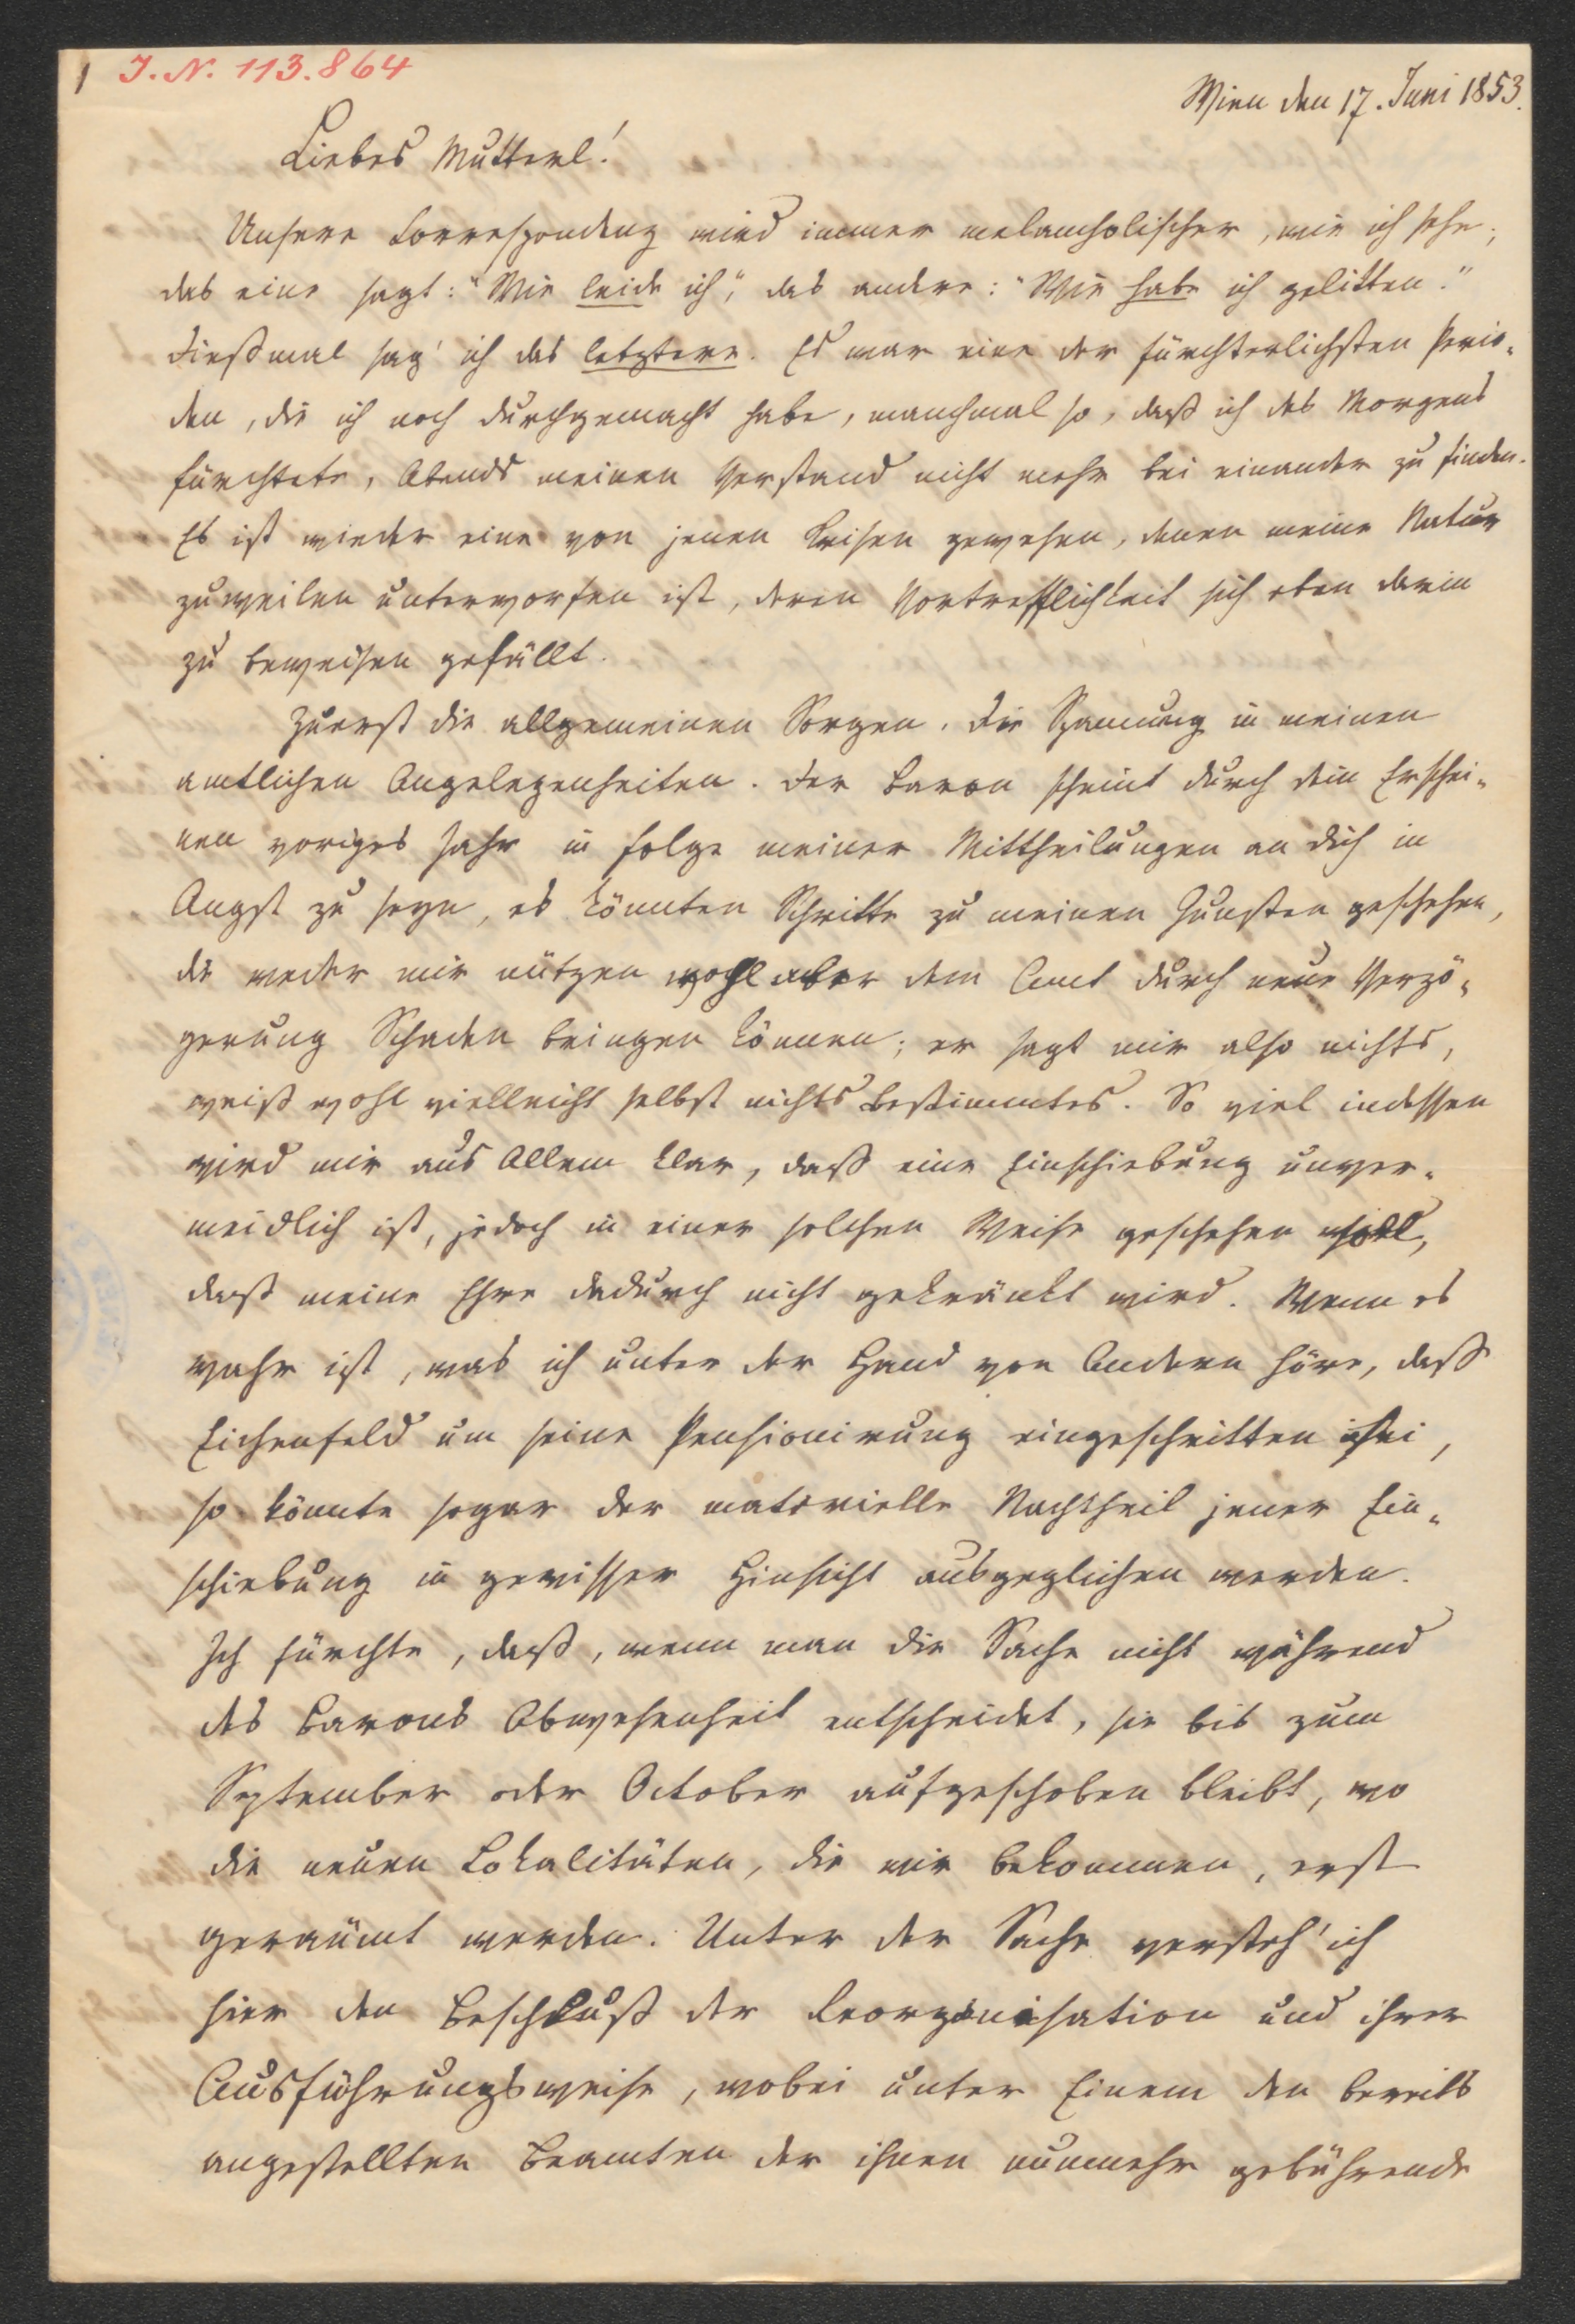 1 J. N. 113.864
Wien den 17. Juni 1853.
Liebes Mutterl!
Unsere Correspondenz wird immer melancholischer, wie ich sehe;
das eine sagt: "Wie leide ich", das andere: "Wie habe ich gelitten."
Dießmal sag' ich das letztere. Es war eine der fürchterlichsten Perio-
den, die ich noch durchgemacht habe, manchmal so, daß ich des Morgens
fürchtete, Abends meinen Verstand nicht mehr bei einander zu finden.
Es ist wieder eine von jenen Krisen gewesen, denen meine Natur
zuweilen unterworfen ist, deren Vortrefflichkeit sich eben darin
zu beweisen gefällt.
Zuerst die allgemeinen Sorgen. Die Spannung in meinen
amtlichen Angelegenheiten. Der Baron scheint durch dein Erschei-
nen voriges Jahr in Folge meiner Mittheilungen an dich in
Angst zu seyn, es könnten Schritte zu meinen Gunsten geschehen,
die weder mir nützen wohl aber dem Amt durch neue Verzö-
gerung Schaden bringen können; er sagt mir also nichts,
weiß wohl vielleicht selbst nichts Bestimmtes. So viel indessen
wird mir aus Allem klar, daß eine Einschiebung unver-
meidlich ist, jedoch in einer solchen Weise geschehen soll,
daß meine Ehre dadurch nicht gekränkt wird. Wenn es
wahr ist, was ich unter der Hand von Andern höre, daß
Eichenfeld um seine Pensionirung eingeschritten sei,
so könnte sogar der materielle Nachtheil jener Ein-
schiebung in gewisser Hinsicht ausgeglichen werden.
Ich fürchte, daß, wenn man die Sache nicht während
des Barons Abwesenheit entscheidet, sie bis zum
September oder October aufgeschoben bleibt, wo
die neuen Lokalitäten, die wir bekommen, erst
geräumt werden. Unter der Sache versteh' ich
hier den Beschluß der Reorganisation und ihrer
Ausführungsweise, wobei unter Einem den bereits
angestellten Beamten der ihnen nunmehr gebührende